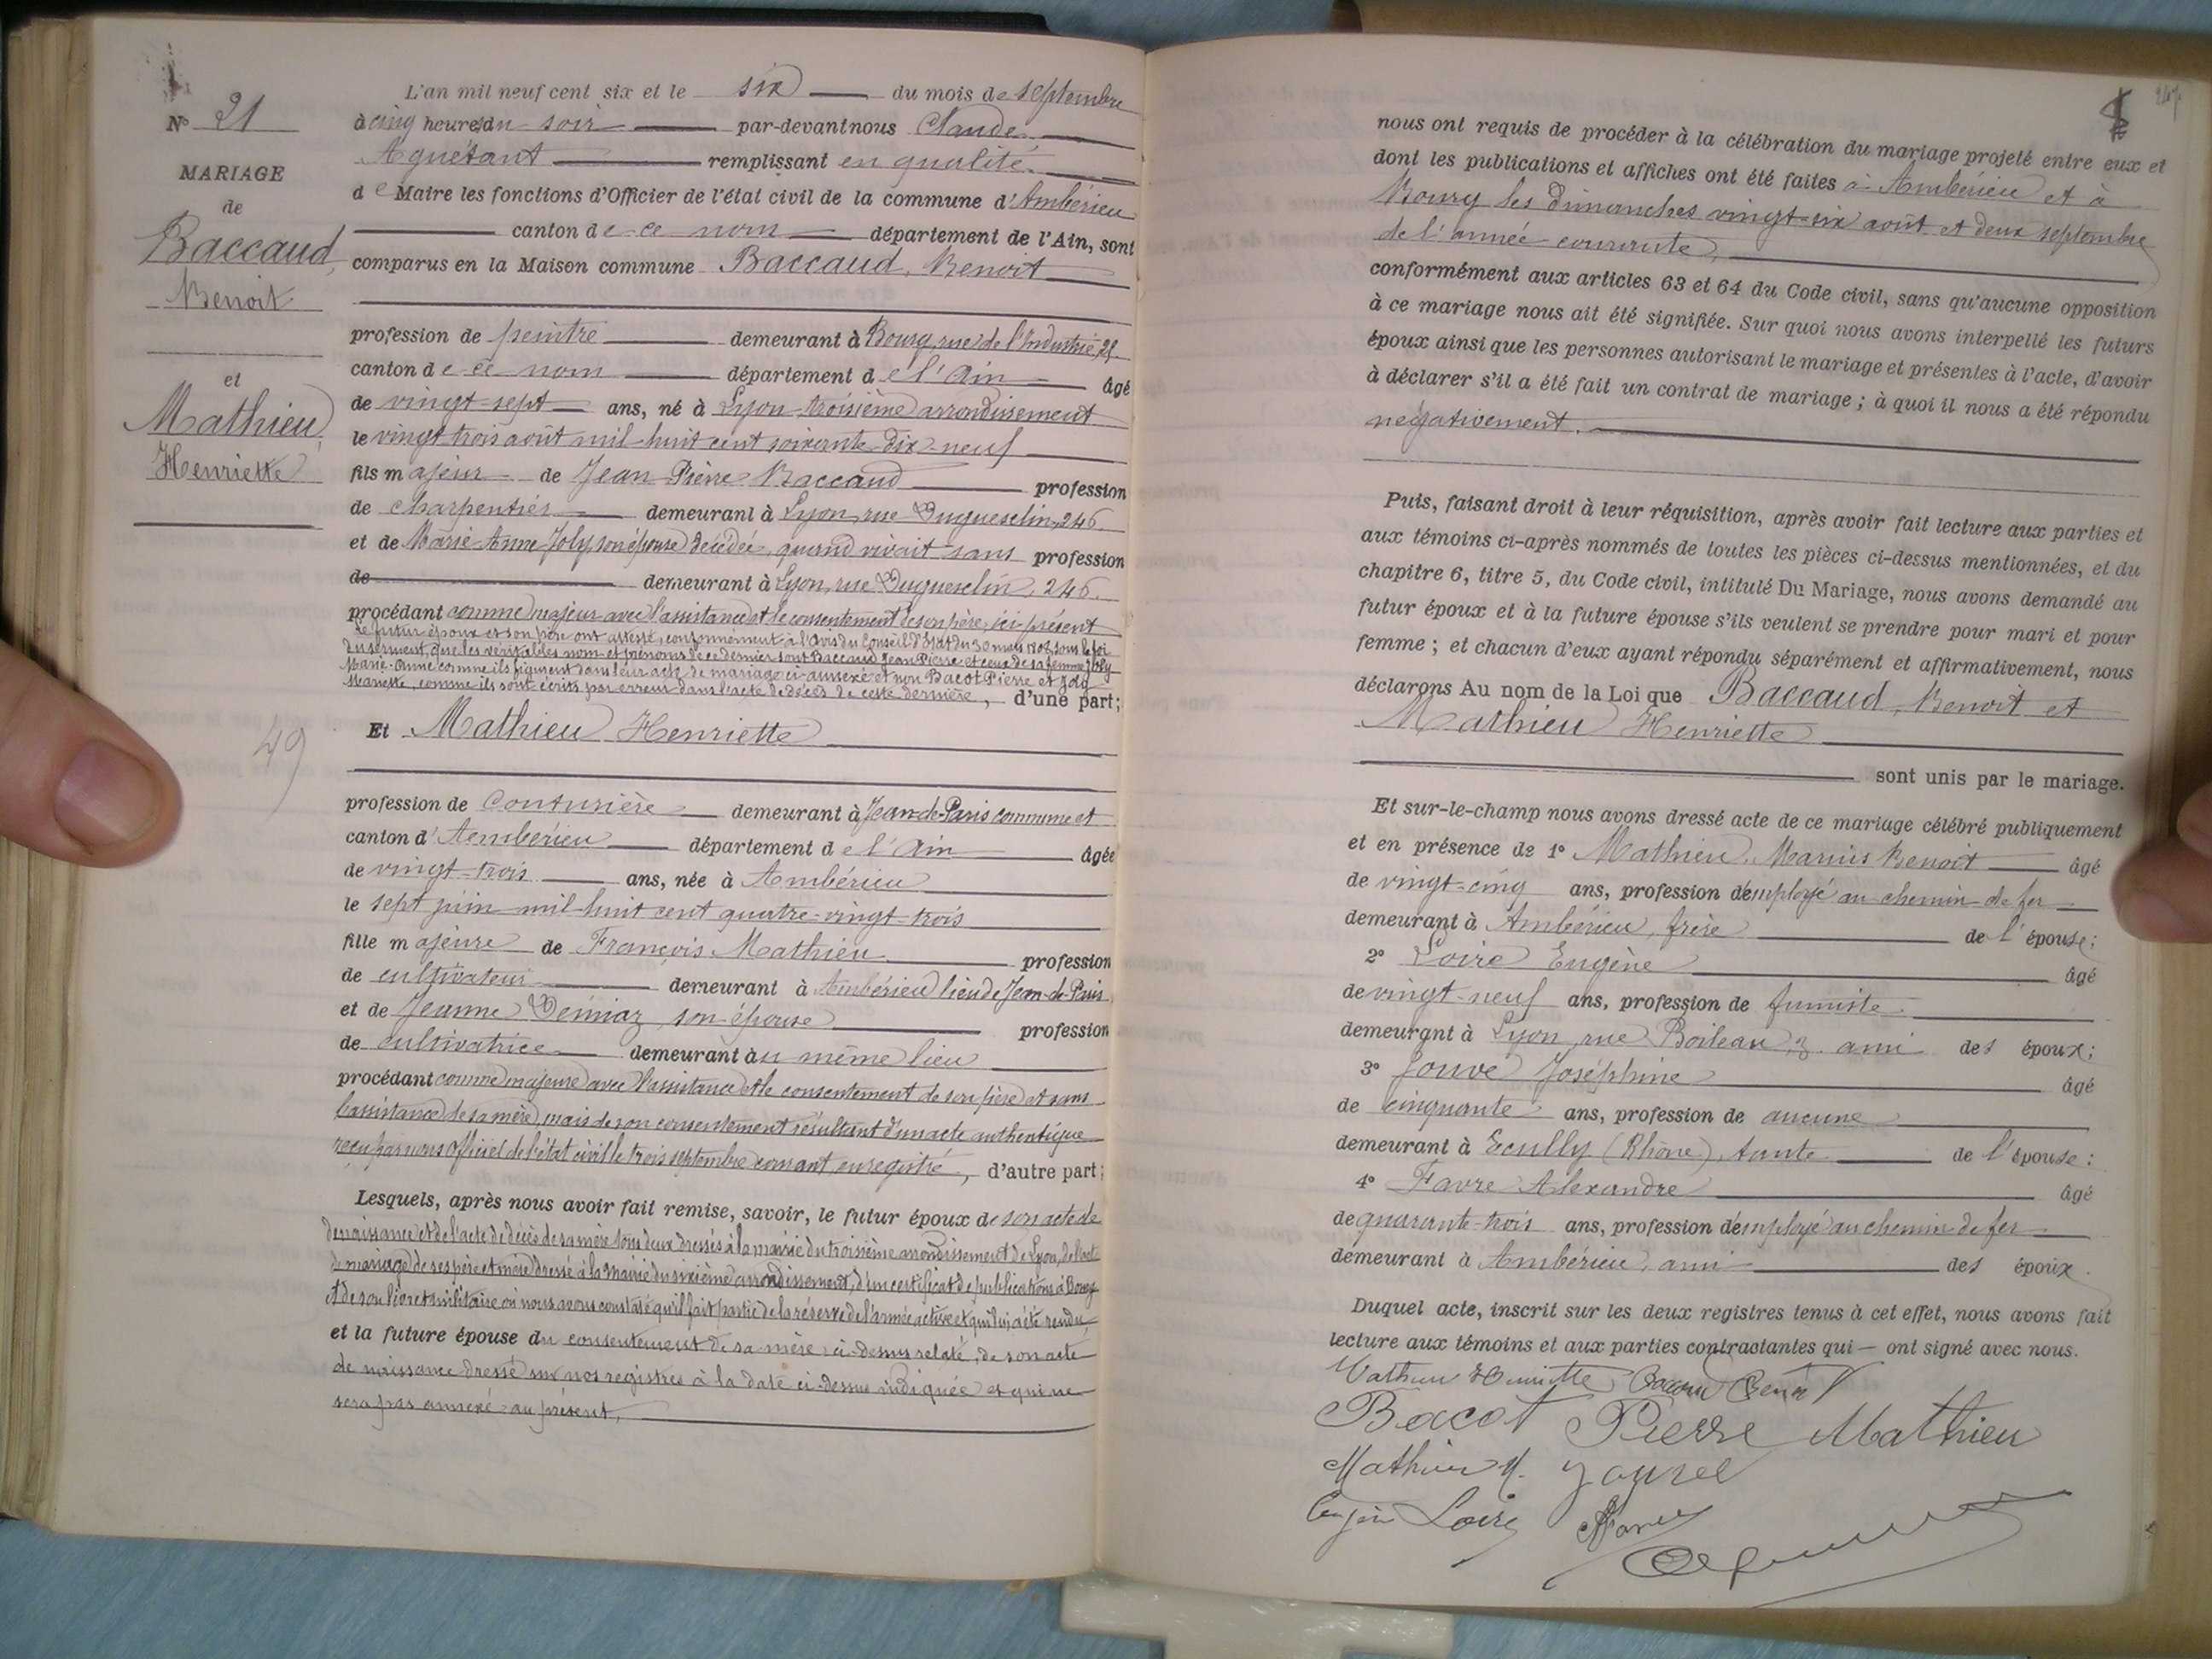 N° 21
MARIAGE
de
Baccaud,
Benoit
et
Mathieu,
Henriette
49
L'an mil neuf cent six et le six du mois de septembre
à cinq heures du soir par-devant nous Claude
Aguétant remplissant en qualité
de Maire les fonctions d'Officier de l'état civil de la commune d'Ambérieu
canton de ce nom département de l'Ain, sont
comparus en la Maison commune Baccaud, Benoit
profession de peintre demeurant à Bourg, rue de l'Industrie,
canton de ce nom département de l'Ain âgé
de vingt-sept ans, né à Lyon troisième arrondissement
le vingt trois août mil huit cent soixante-dix-neuf
fils majeur de Jean-Pierre Baccaud profession
de charpentier demeurant à Lyon, rue Duguesclin, 246
et de Marie-Anne Joly son épouse décédée, quand vivait sans profession
de demeurant à Lyon, rue Duguesclin, 246.
procédant comme majeur avec l'assistance et le consentement de son père, ici présent
Le futur époux et son père ont attesté, conformément à l'Avis du Conseil d'Etat du 30 mars 1808, sous la foi
du serment, que les véritables nom et prénoms de ce dernier sont Baccaud Jean Pierre et ceux de sa femme Joly
Marie-Anne comme ils figurent dans leur acte de mariage ci-annexé et non Bacot Pierre et Joly
Mariette, comme ils sont écrits par erreur dans l'acte de décès de cette dernière, d'une part;
Et Mathieu Henriette
profession de Couturière demeurant à Jean-de-Paris commune et
canton d'Ambérieu département de l'Ain âgée
de vingt-trois ans, née à Ambérieu
le sept juin mil huit cent quatre-vingt-trois
fille majeure de François Mathieu profession
de cultivateur demeurant à Ambérieu lieu de Jean-de-Paris
et de Jeanne Déniaz, son épouse profession
de cultivatrice demeurant au même lieu
procédant comme majeure avec l'assistance et le consentement de son père et sans
l'assistance de sa mère, mais de son consentement résultant d'un acte authentique
reçu par nous Officier de l'état civil le trois septembre courant enregistré, d'autre part;
Lesquels, après nous avoir fait remise, savoir, le futur époux de son acte de
de naissance et de l'acte de décès de sa mère tous deux dressés à la mairie du troisième arrondissement de Lyon, de l'acte
de mariage de ses père et mère dressé à la mairie du sixième arrondissement, d'un certificat de publications à Bourg
et de son livret militaire où nous avons constaté qu'il fait partie de la réserve de l'armée active et qui lui a été rendu
et la future épouse du consentement de sa mère ci-dessus relaté, de son acte
de naissance dressé sur nos registres à la date ci-dessus indiquée et qui ne
sera pas annexé au présent,
nous ont requis de procéder à la célébration du mariage projeté entre eux et
dont les publications et affiches ont été faites à Ambérieu et à
Bourg les dimanches vingt-six août et deux septembre
de l'année courante,
conformément aux articles 63 et 64 du Code civil, sans qu'aucune opposition
à ce mariage nous ait été signifiée. Sur quoi nous avons interpellé les futurs
époux ainsi que les personnes autorisant le mariage et présentes à l'acte, d'avoir
à déclarer s'il a été fait un contrat de mariage; à quoi il nous a été répondu
négativement.
Puis, faisant droit à leur réquisition, après avoir fait lecture aux parties et
aux témoins ci-après nommés de toutes les pièces ci-dessus mentionnées, et du
chapitre 6, titre 5, du Code civil, intitulé Du Mariage, nous avons demandé au
futur époux et à la future épouse s'ils veulent se prendre pour mari et pour
femme; et chacun d'eux ayant répondu séparément et affirmativement, nous
déclarons Au nom de la Loi que Baccaud, Benoit et
Mathieu Henriette
sont unis par le mariage.
Et sur-le-champ nous avons dressé acte de ce mariage célébré publiquement
et en présence de 1° Mathieu, Marius Benoit âgé
de vingt-cinq ans, profession d'employé au chemin de fer
demeurant à Ambérieu, frère de l'épouse;
2° Loire Eugène âgé
de vingt-neuf ans, profession de fumiste
demeurant à Lyon, rue Boileau, 3 ami des époux;
3° Jouve Joséphine âgé
de cinquante ans, profession de aucune
demeurant à Ecully (Rhône), tante de l'épouse:
4° Favre Alexandre âgé
de quarante-trois ans, profession d'employé au chemin de fer
demeurant à Ambérieu, ami des époux.
Duquel acte, inscrit sur les deux registres tenus à cet effet, nous avons fait
lecture aux témoins et aux parties contractantes qui — ont signé avec nous.
Mathieu Henriette
Bacot Pierre Mathieu
Mathieu M.
Eugène Loire